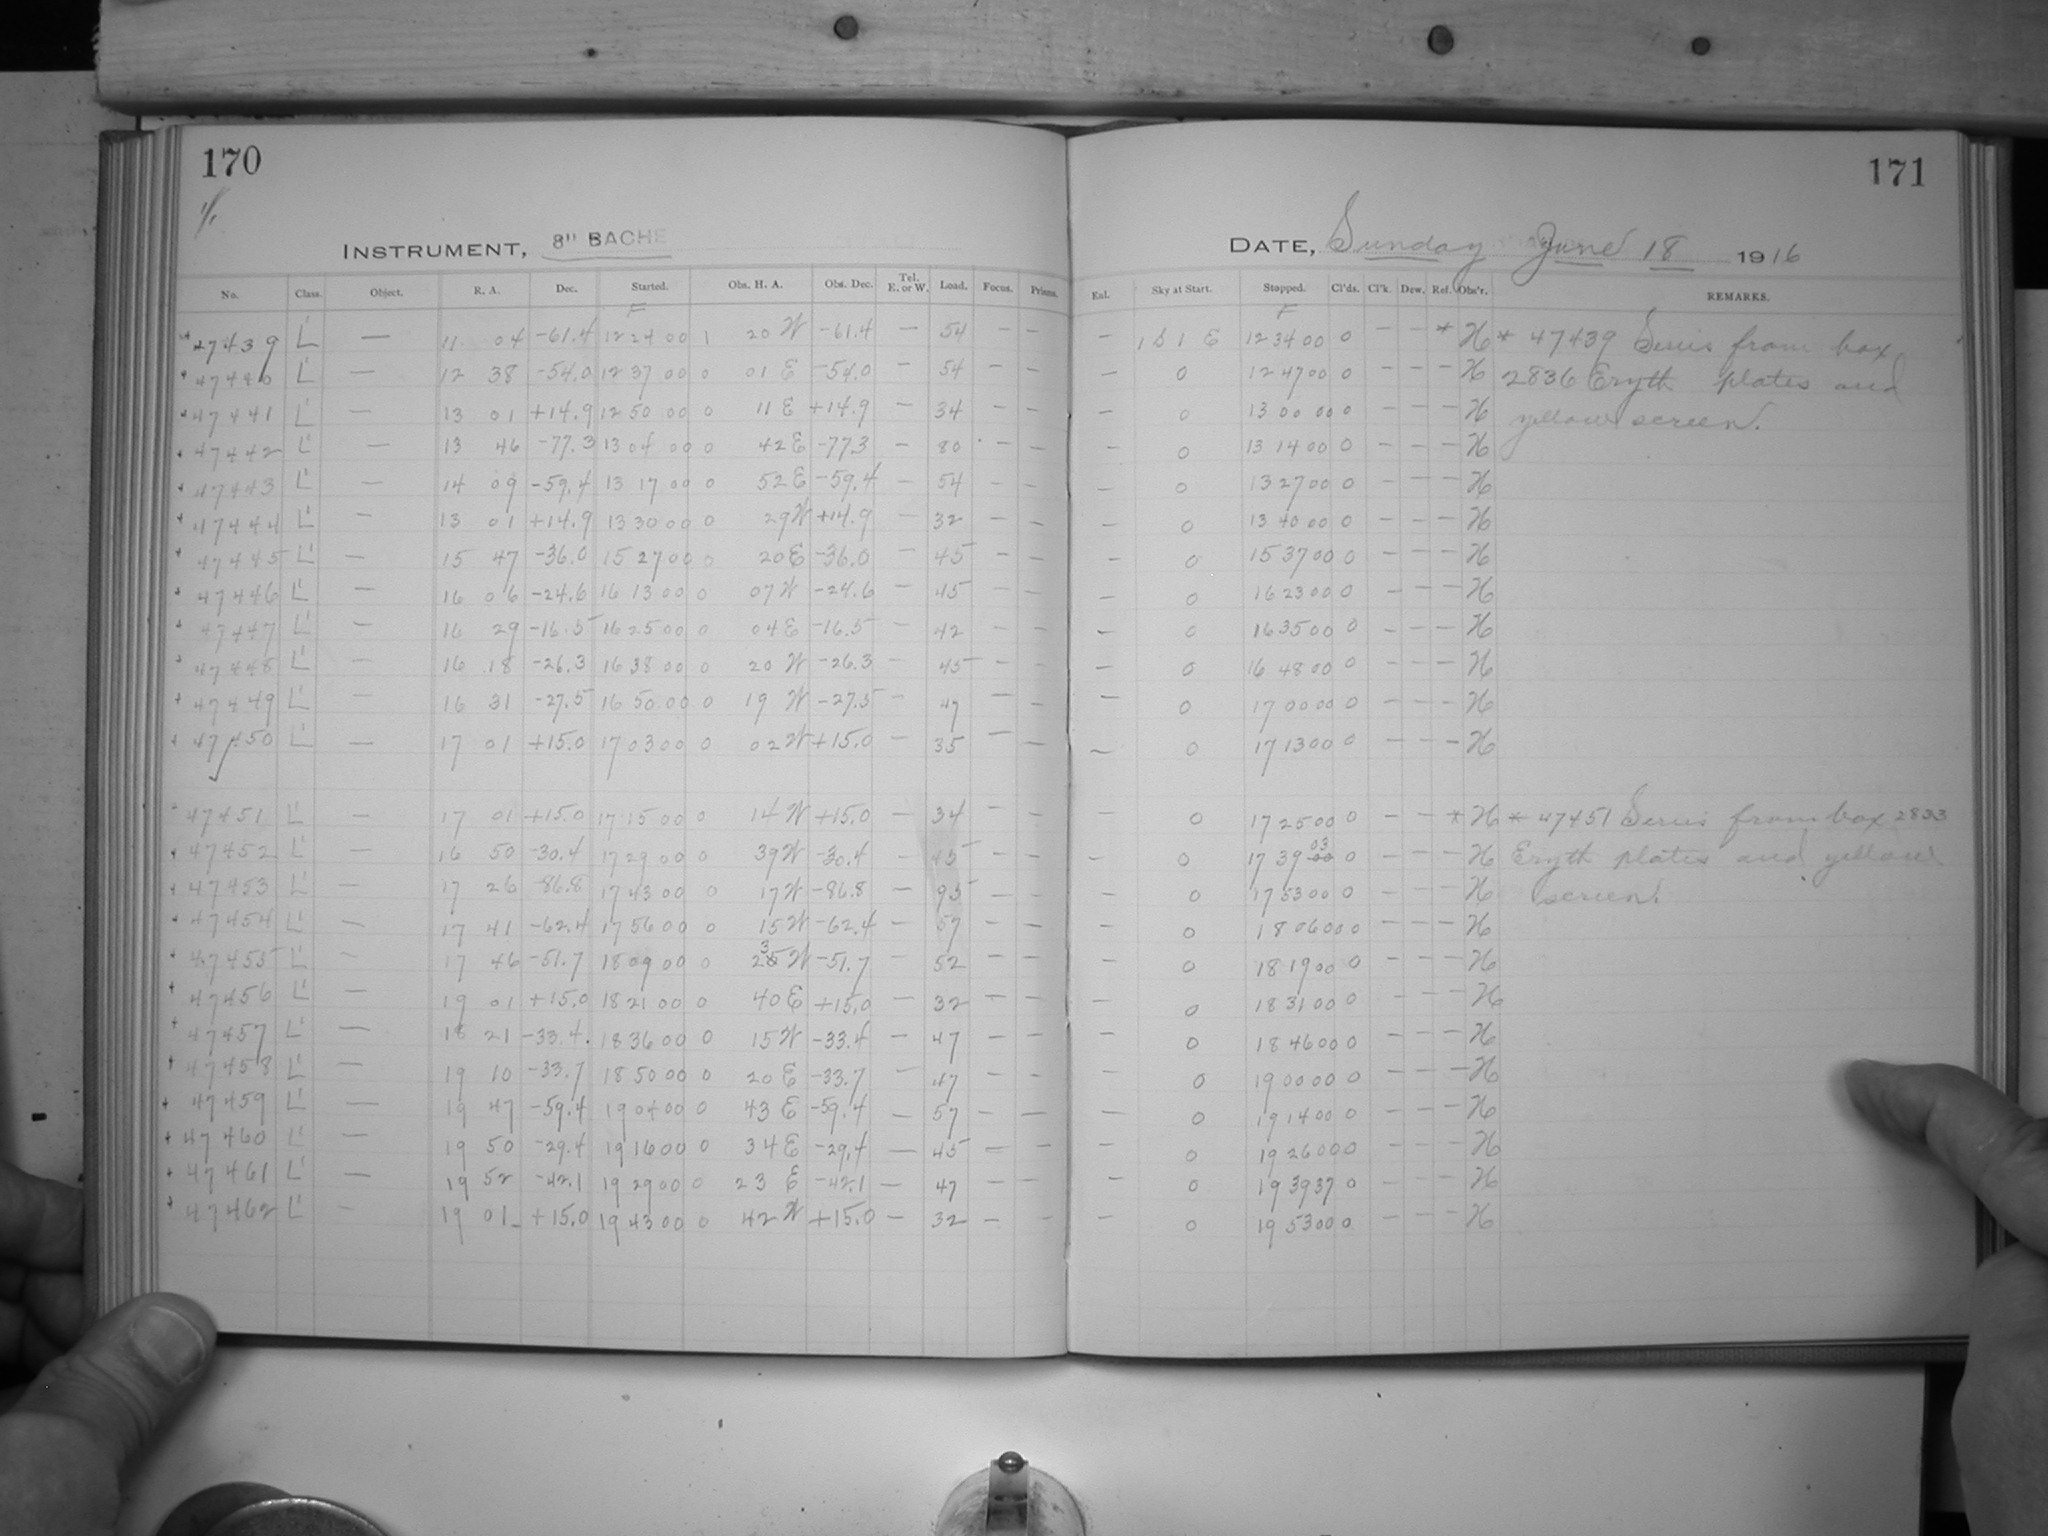 170
171
1/1
INSTRUMENT, 8" BACHE
DATE, Sunday June 18 1916
No. Class. Object. R. A. Dec. Started. Obs. H. A. Obs. Dec. Tel. E. or W. Load. Focus. Prisms. Eal. Sky at Start. Stopped. Cl'ds. Cl'k. Dew. Ref. Obs'r. REMARKS.
F F
47439 L' — 11 04 -61.4 12 24 00 1 20 W -61.4 — 54 — — — 1 S 1 E 12 34 00 0 — — * H * 47439 Series from box
47440 L' — 12 38 -54.0 12 37 00 0 01 E -54.0 — 54 — — — 0 12 47 00 0 — — — H 2836 Eryth plates and
47441 L' — 13 01 +14.9 12 50 00 0 11 E +14.9 — 34 — — — 0 13 00 00 0 — — — H yellow screen.
47442 L' — 13 46 -77.3 13 04 00 0 42 E -77.3 — 80 — — — 0 13 14 00 0 — — — H
47443 L' — 14 09 -59.4 13 17 00 0 52 E -59.4 — 54 — — — 0 13 27 00 0 — — — H
47444 L' — 13 01 +14.9 13 30 00 0 29 W +14.9 — 32 — — — 0 13 40 00 0 — — — H
47445 L' — 15 47 -36.0 15 27 00 0 20 E -36.0 — 45 — — — 0 15 37 00 0 — — — H
47446 L' — 16 06 -24.6 16 13 00 0 07 W -24.6 — 45 — — — 0 16 23 00 0 — — — H
47447 L' — 16 29 -16.5 16 25 00 0 04 E -16.5 — 42 — — — 0 16 35 00 0 — — — H
47448 L' — 16 18 -26.3 16 38 00 0 20 W -26.3 — 45 — — — 0 16 48 00 0 — — — H
47449 L' — 16 31 -27.5 16 50 00 0 19 W -27.5 — 47 — — — 0 17 00 00 0 — — — H
47450 L' — 17 01 +15.0 17 03 00 0 02 W +15.0 — 35 — — — 0 17 13 00 0 — — — H
47451 L' — 17 01 +15.0 17 15 00 0 14 W +15.0 — 34 — — — 0 17 25 00 0 — — * H * 47451 Series from box 2833
47452 L' — 16 50 -30.4 17 29 00 0 39 W -30.4 — 45 — — — 0 17 39 03 0 — — — H Eryth plates and yellow
47453 L' — 17 26 -86.8 17 43 00 0 17 W -86.8 — 95 — — — 0 17 53 00 0 — — — H screen.
47454 L' — 17 41 -62.4 17 56 00 0 15 W -62.4 — 57 — — — 0 18 06 00 0 — — — H
47455 L' — 17 46 -51.7 18 09 00 0 23 W -51.7 — 52 — — — 0 18 19 00 0 — — — H
47456 L' — 19 01 +15.0 18 21 00 0 40 E +15.0 — 32 — — — 0 18 31 00 0 — — — H
47457 L' — 18 21 -33.4 18 36 00 0 15 W -33.4 — 47 — — — 0 18 46 00 0 — — — H
47458 L' — 19 10 -33.7 18 50 00 0 20 E -33.7 — 47 — — — 0 19 00 00 0 — — — H
47459 L' — 19 47 -59.4 19 04 00 0 43 E -59.4 — 57 — — — 0 19 14 00 0 — — — H
47460 L' — 19 50 -29.4 19 16 00 0 34 E -29.4 — 45 — — — 0 19 26 00 0 — — — H
47461 L' — 19 52 -42.1 19 29 00 0 23 E -42.1 — 47 — — — 0 19 39 37 0 — — — H
47462 L' — 19 01 +15.0 19 43 00 0 42 W +15.0 — 32 — — — 0 19 53 00 0 — — — H